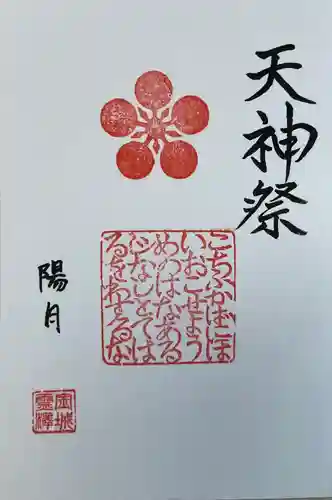 天神祭
こちふかばにほ
いおこせよう
めのはなある
じなしとては
るをわするな
陽月
金城
靈澤